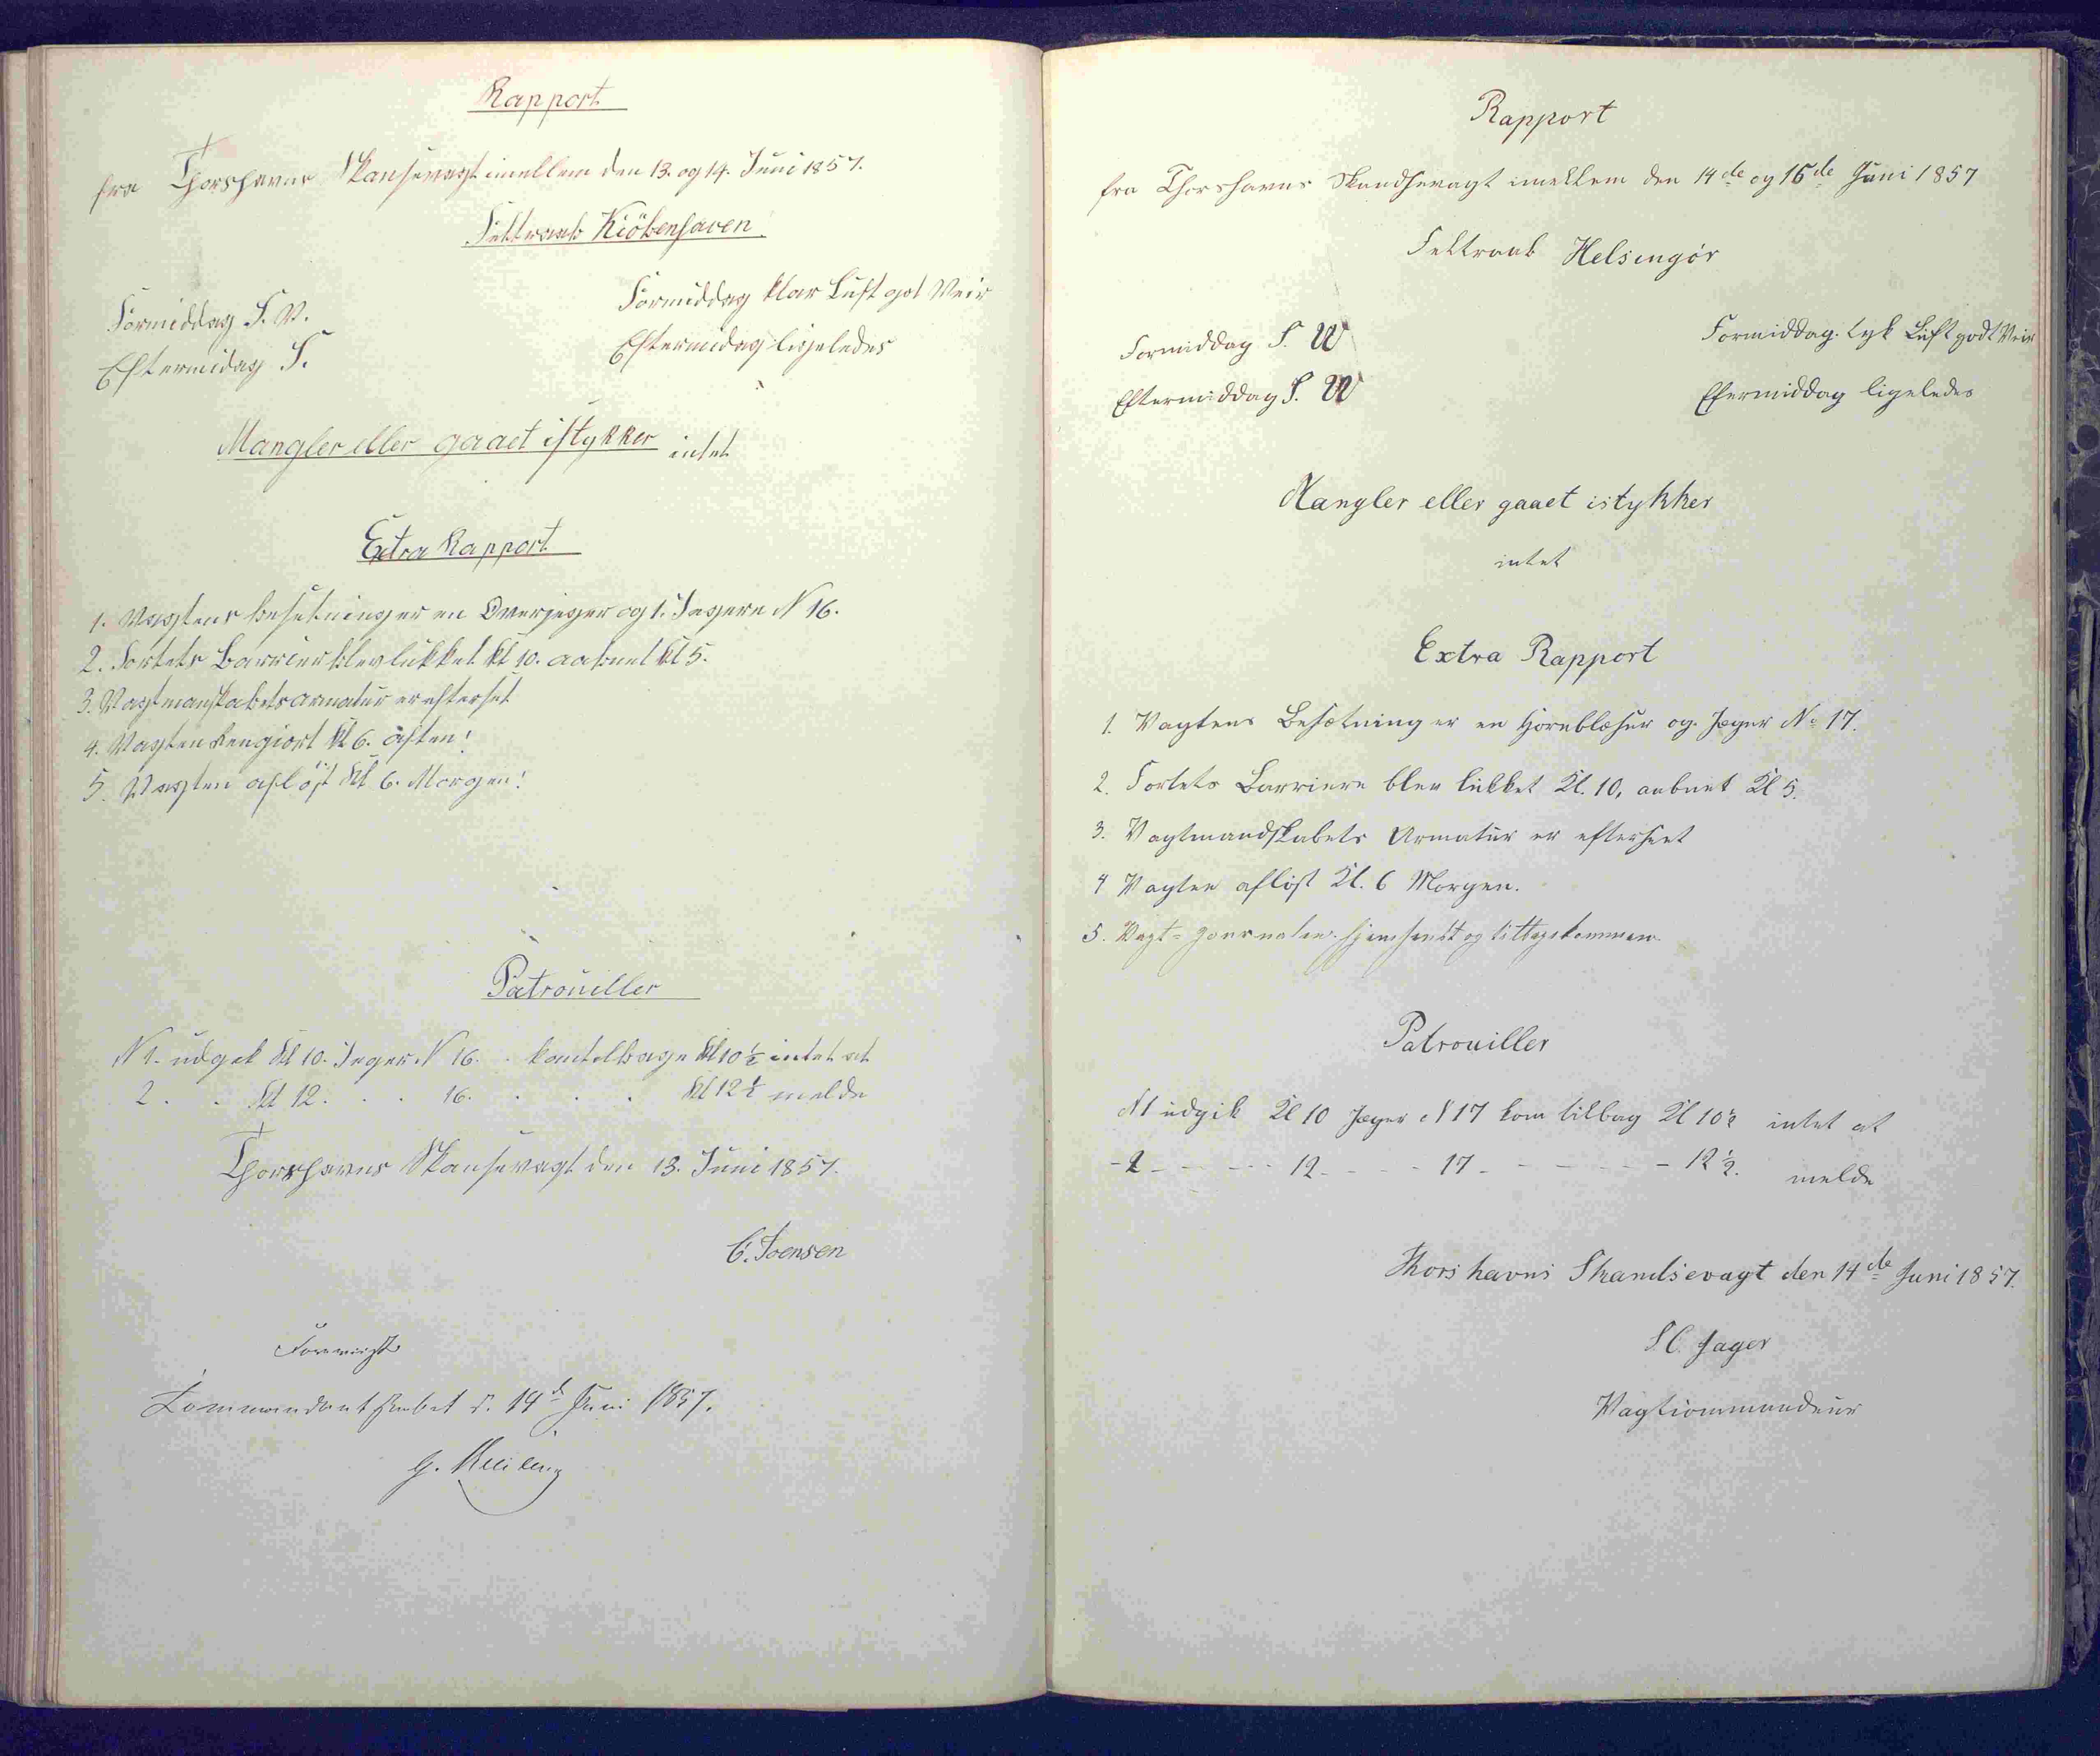 Rapport
fra Thorshavns Skansevagt imellem den 13. og 14. Juni 1857.
Feltraab Kiöbenhaven
Formiddag S. V.
Eftermidag S.
Formiddag klar Luft got Veir
Eftermidag ligeledes
Mangler eller gaaet istykker intet
Extra Rapport
1. Vagtens besetning er en Overjeger og 1. Jegere N 16.
2. Fortets Barrier blev lukket Kl 10. aabnet Kl 5.
3. Vagtmanskabets armatur er efterset
4. Vagten Rengiort Kl 6. aften!
5. Vagten aflöst Kl 6. Morgen!
Patrouiller
N 1. udgek Kl 10. Jeger N 16. kom telbage Kl 10½ intet at
2. . Kl 12. . . 16. . . . Kl 12½ melde
Thorshavns Skansevagt den 13. Juni 1857.
C. Joensen
Foreviist
Commandantskabet d. 14d Juni 1857.
Rapport
fra Thorshavns Skandsevagt imellem den 14de og 15de Juni 1857
Feltraab Helsingör
Formiddag S. W
Eftermiddag S. W
Formiddag tyk Luft godt Veir
Efermiddag ligeledes
Mangler eller gaaet istykker
intet
Extra Rapport
1. Vagtens Besætning er en Hornblæser og Jæger No 17.
2. Fortets Barriere blev lukket Kl. 10, aabnet Kl 5.
3. Vagtmandskabets Armatur er efterseet
4 Vagten aflöst Kl. 6 Morgen.
5. Vagt-Journalen hjemsendt og
Patrouiller
N1 udgik Kl 10 Jæger N 17 kom tilbag Kl 10½ intet at
- 2 - - - - - 12 - - - - 17 - - - - - - - 12½. melde
Thorshavns Skandsevagt den 14de Juni 1857.
S. C. Jager
Vagtcommandeur